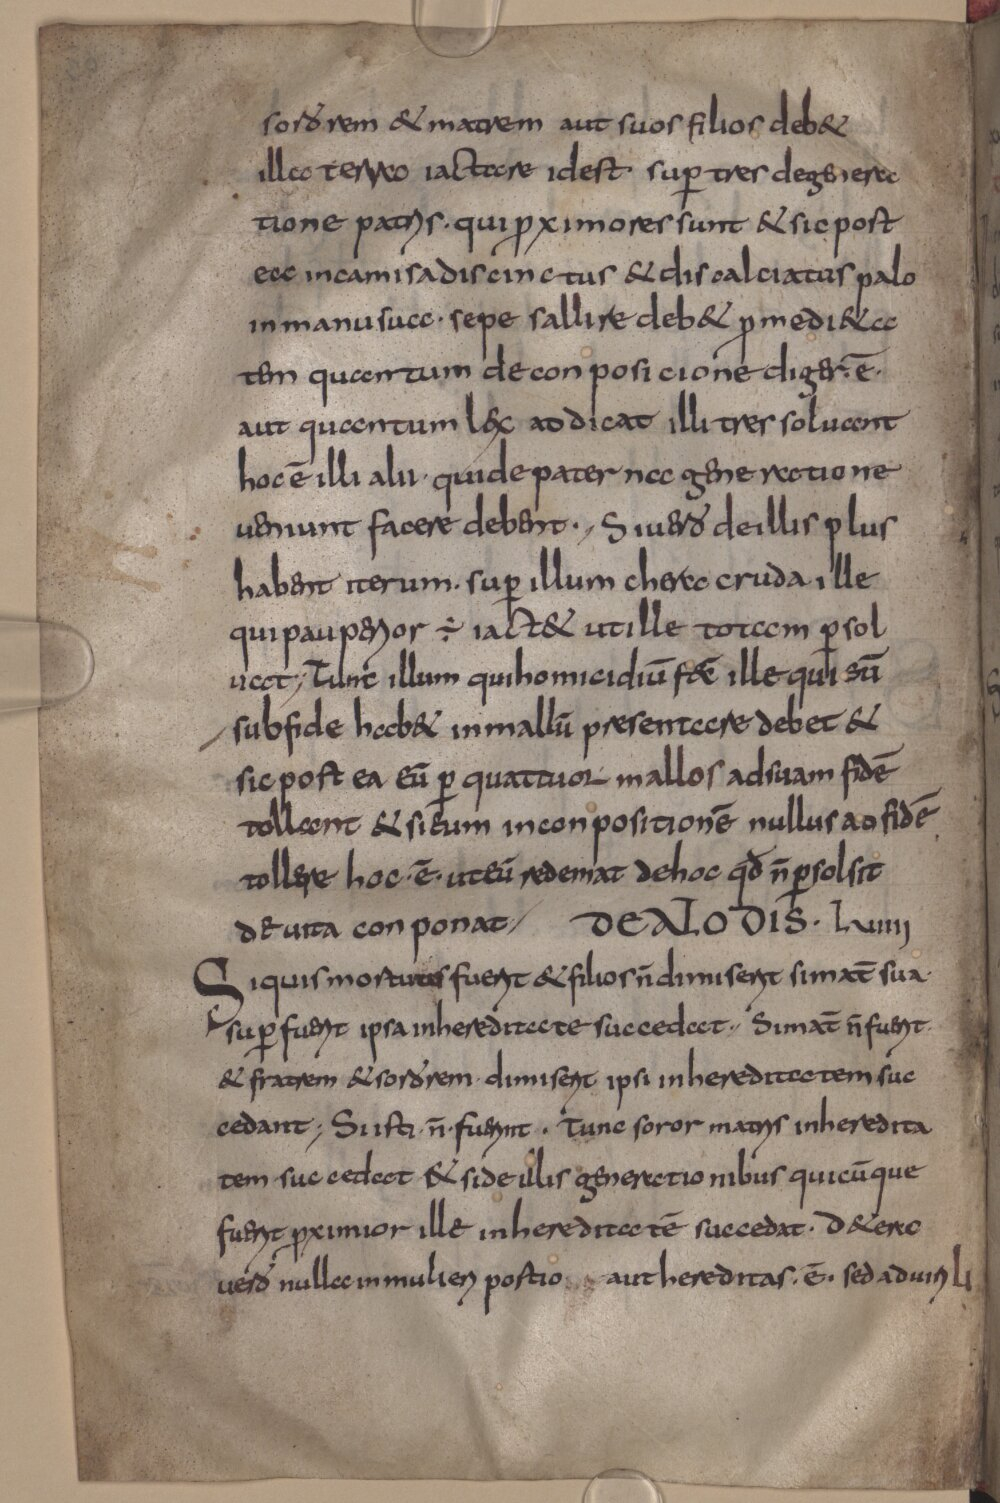 sororem & matrem aut suos filios deb&
illa terra iactare idest sup tres degenera
tione patris · qui pximores sunt & sic post
ea incamisa discinctus & discalciatus palo
in manu sua · sepe sallire deb& p medi&a
tem quantum de conposicione diger · ē ·
aut quantum lex addicat illi tres soluant
hoc ē illi alii · qui de pater na generatione
ueniunt facere debent · Si uero de illis plus
habent iterum · sup illum chera cruda ille
qui pauperior ÷ iact& ut ille totam psol
uat, Tunc illum qui homicidiū fec̄ ille qui sū
sub fide hab& in mallū presentare debet &
sic post ea eū p quattuor mallos ad suam fidē
tollant & si eum in conpositionē nullus ad fidē
tollere hoc · ē · ut eū redemat de hoc qd n̄ psolsit
de uita conponat, DE ALODIS · Lviiii
Si quis mortuus fuerit & filios n̄ dimiserit si mat̄ sua
sup fuerit ipsa in hereditate succedat, Si mat̄ n̄ fuerit
& fratrem & sororem dimiserit ipsi in hereditatem suc
cedant, Si isti · n̄ · fuerint · Tunc soror matris in heredita
tem succedat & si de illis generationibus quicūque
fuerit pximior ille in hereditatē succedat · D& era
uero nulla in mulieri postio aut hereditas · ē · sed ad uirili